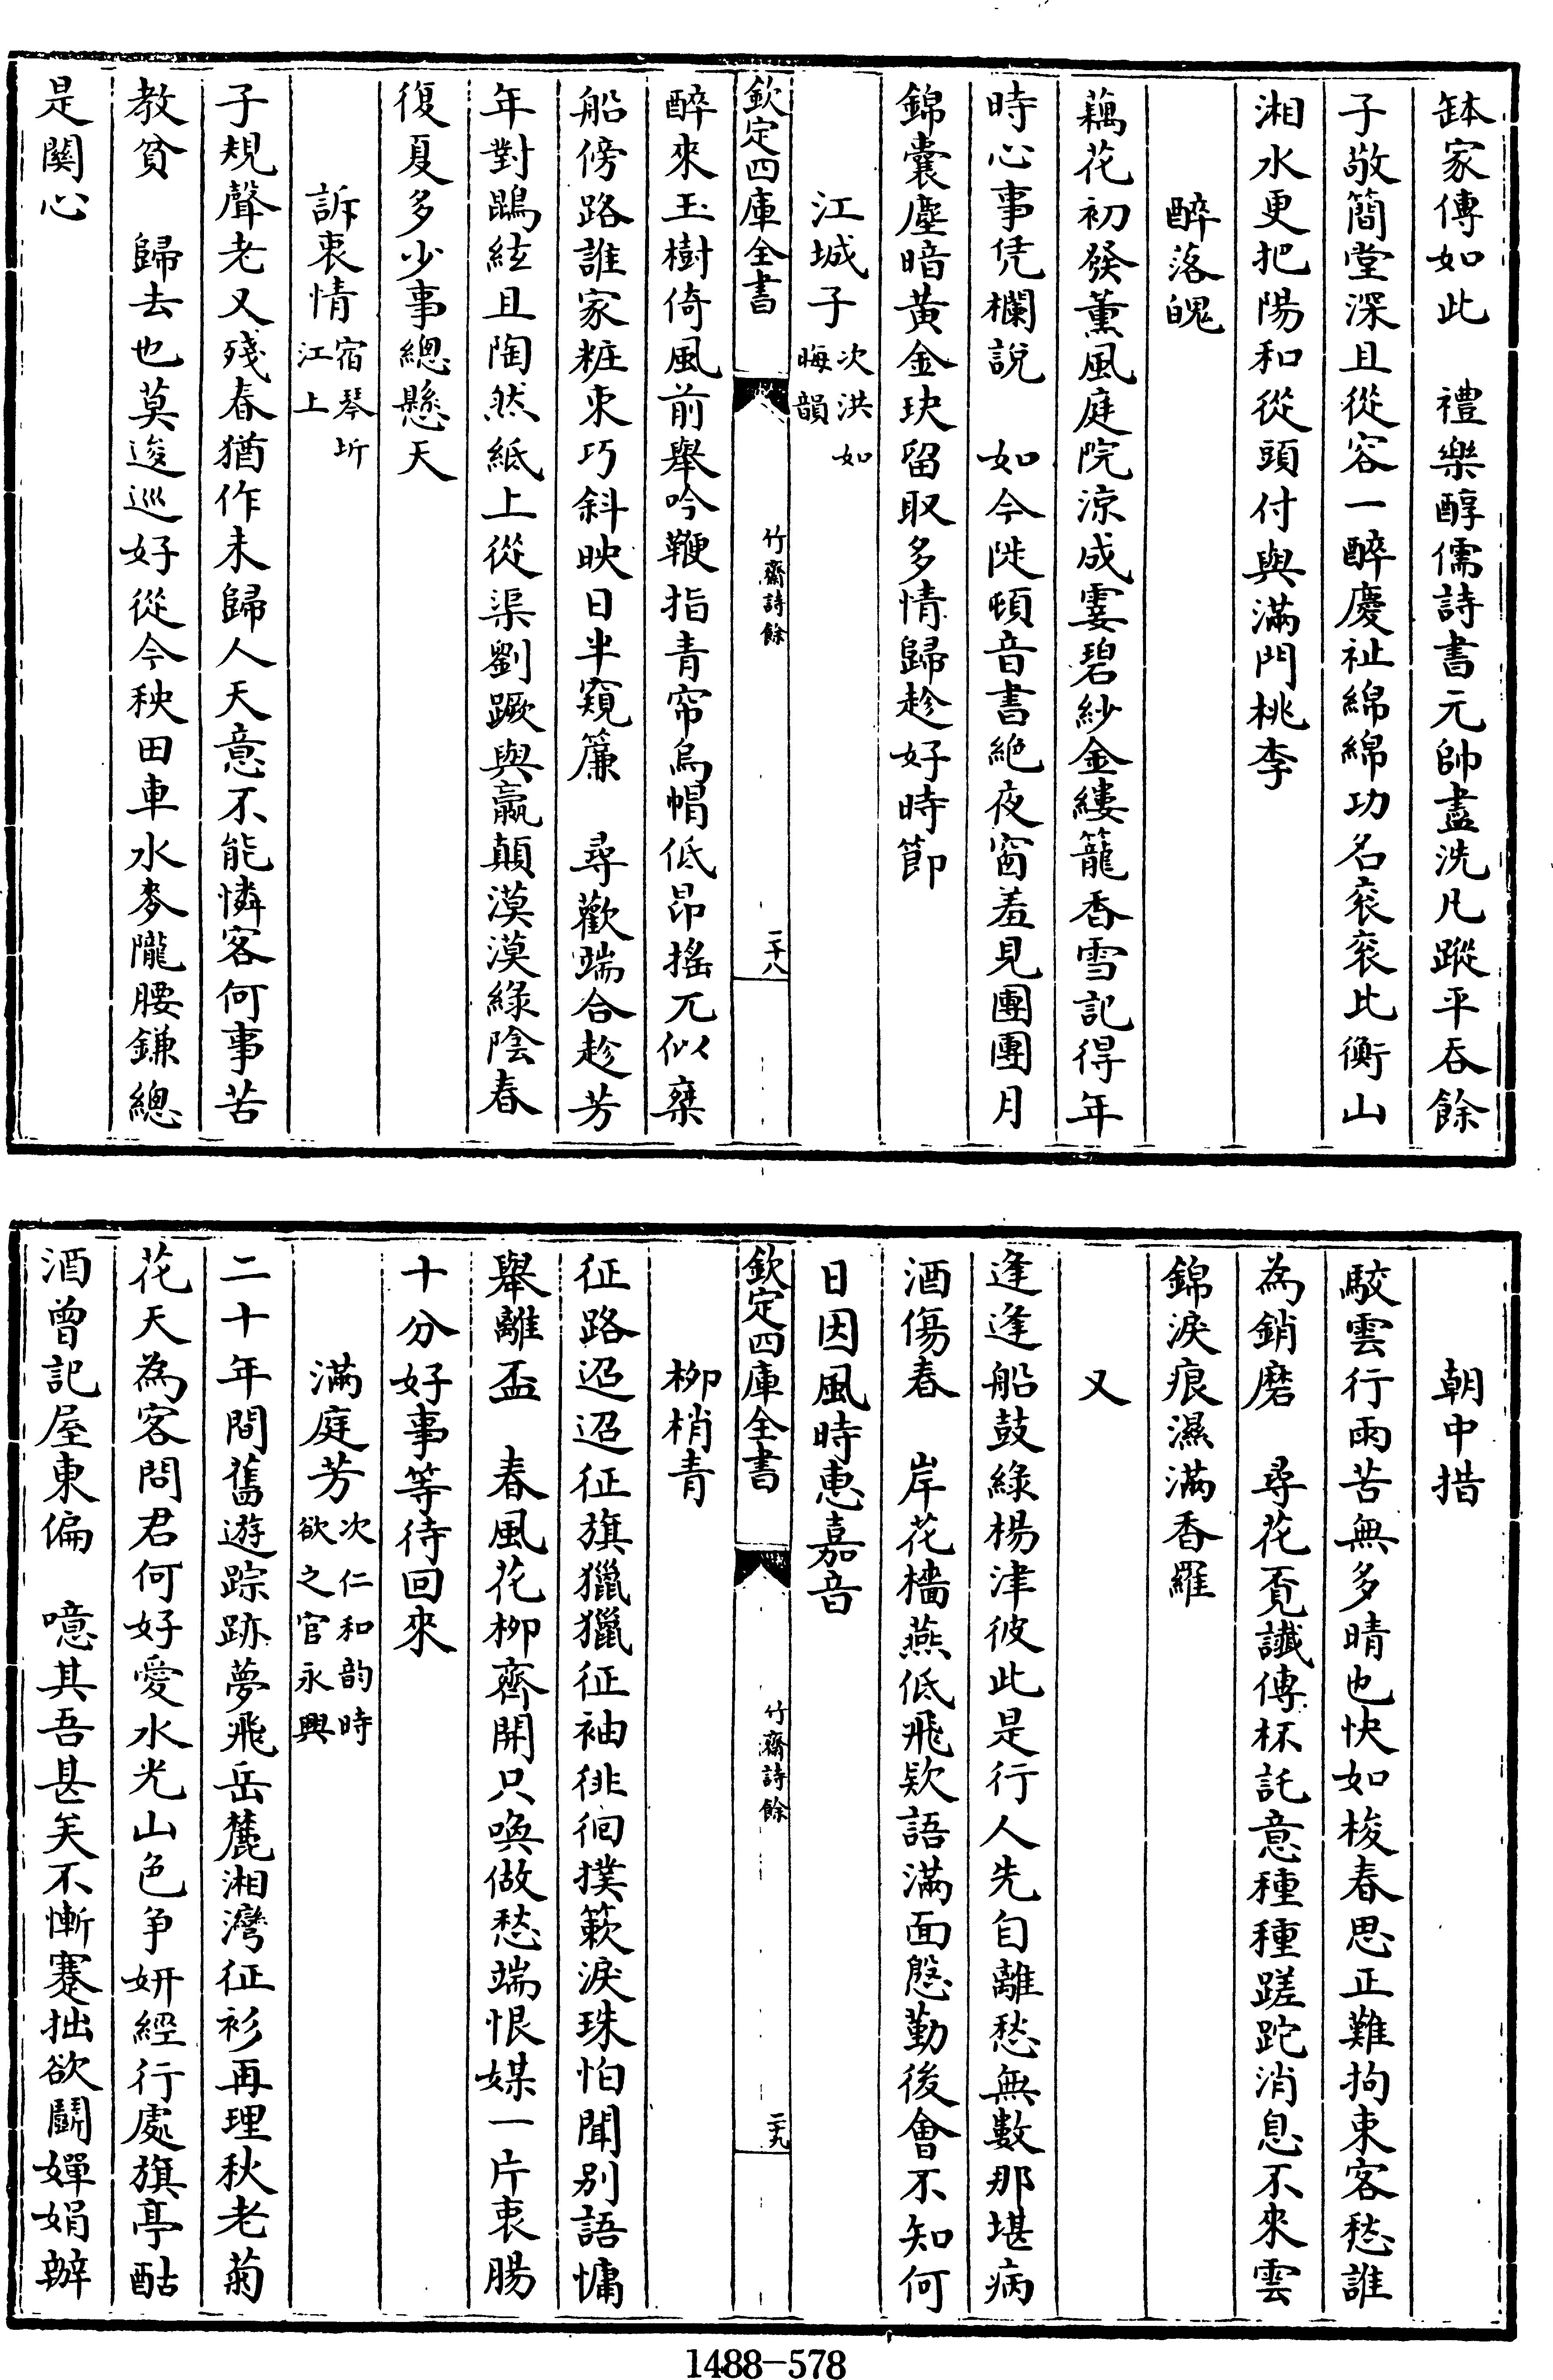 缽家傳如此　禮樂醇儒詩書元帥盡洗凡蹤平吞餘
子敬簡堂深且從容一醉慶祉綿綿功名衮衮比衡山
湘水更把陽和從頭付與滿門桃李
醉落魄
藕花初發薰風庭院涼成霎碧紗金縷籠香雪記得年
時心事凭欄說　如今陡頓音書絶夜窗羞見團團月
錦囊塵暗黃金玦留取多情歸趁好時節
江城子次洪如晦韻
欽定四庫全書
竹齋詩餘
二十八
醉來玉樹倚風前舉吟鞭指青帘烏帽低昂搖兀似乘
船傍路誰家粧束巧斜映日半窺簾　尋歡端合趁芳
年對鵾絃且陶然紙上從渠劉蹶與嬴顛漠漠綠陰春
復夏多少事總懸天
訴衷情宿琴圻江上
子規聲老又殘春猶作未歸人天意不能憐客何事苦
教貧　歸去也莫逡巡好從今秧田車水麥隴腰鎌總
是關心
朝中措
駮雲行雨苦無多晴也快如梭春思正難拘束客愁誰
為銷磨　尋花覔讖傳杯託意種種蹉跎消息不來雲
錦淚痕濕滿香羅
又
逢逢船鼓綠楊津彼此是行人先自離愁無數那堪病
酒傷春　岸花檣燕低飛欵語滿面慇勤後會不知何
日因風時惠嘉音
欽定四庫全書
竹齋詩餘
二十九
柳梢青
征路迢迢征旗獵獵征袖徘徊撲簌淚珠怕聞别語慵
舉離盃　春風花柳齊開只喚做愁端恨媒一片衷腸
十分好事等待回來
滿庭芳次仁和韵時欲之官永興
二十年間舊遊踪跡夢飛岳麓湘灣征衫再理秋老菊
花天為客問君何好愛水光山色争妍經行處旗亭酤
酒曾記屋東偏　噫其吾甚矣不慚蹇拙欲鬬嬋娟辦
1488—578